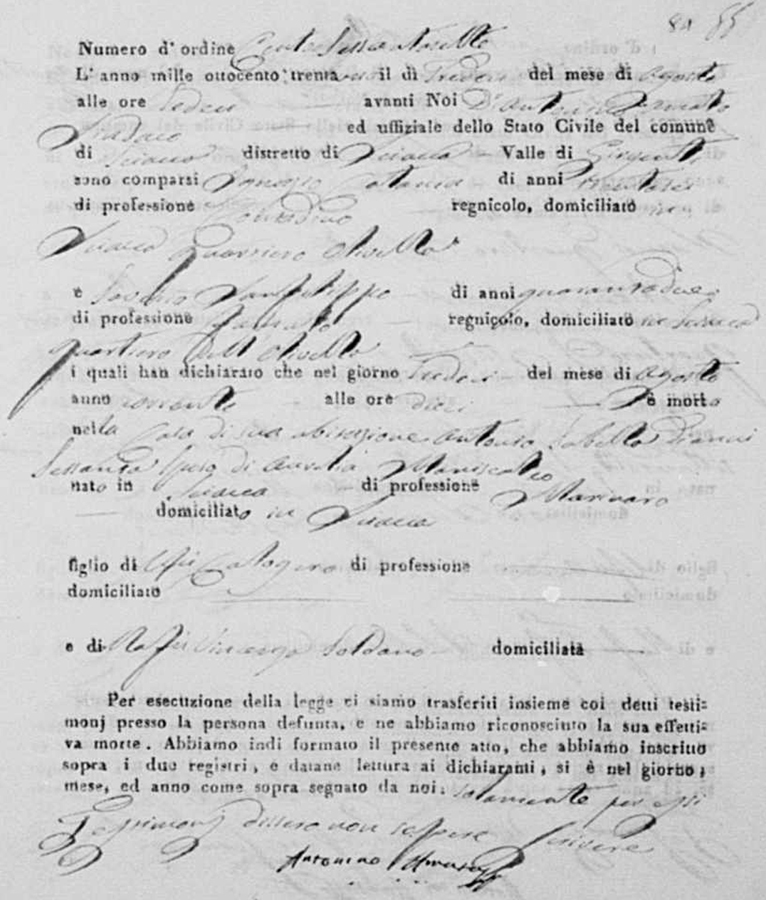 84 55
Numero d'ordine Cento Sessantasette
L'anno mille ottocento trenta il dì Tredeci del mese di Agosto
alle ore Sedeci avanti Noi D. Antonino Amato
Sindaco ed uffiziale dello Stato Civile del comune
di Sciacca distretto di Sciacca Valle di Girgenti
sono comparsi Ignazio Catania di anni
di professione Contadino regnicolo, domiciliato in
Sciacca Quartiero Olivella
e Sanfilippo di anni quarantadue
di professione regnicolo, domiciliato in Sciacca
quartiero dell Olivella
i quali han dichiarato che nel giorno tredeci del mese di Agosto
anno corrente alle ore dieci è morto
nella Casa di sua abitazione Antonio Sabella di anni
Sessanta sposo di Aurelia Maniscalco
nato in Sciacca di professione Marinaro
domiciliato in Sciacca
figlio di Calogero di professione
domiciliato
e di Vincenza Soldano domiciliata
Per esecuzione della legge ci siamo trasferiti insieme coi detti testi=
monj presso la persona defunta, e ne abbiamo riconosciuto la sua effetti=
va morte. Abbiamo indi formato il presente atto, che abbiamo inscritto
sopra i due registri, e datane lettura ai dichiaranti, si è nel giorno,
mese, ed anno come sopra segnato da noi. solamente per essi
Testimonj dissero non sapere scrivere
Antonino Amato